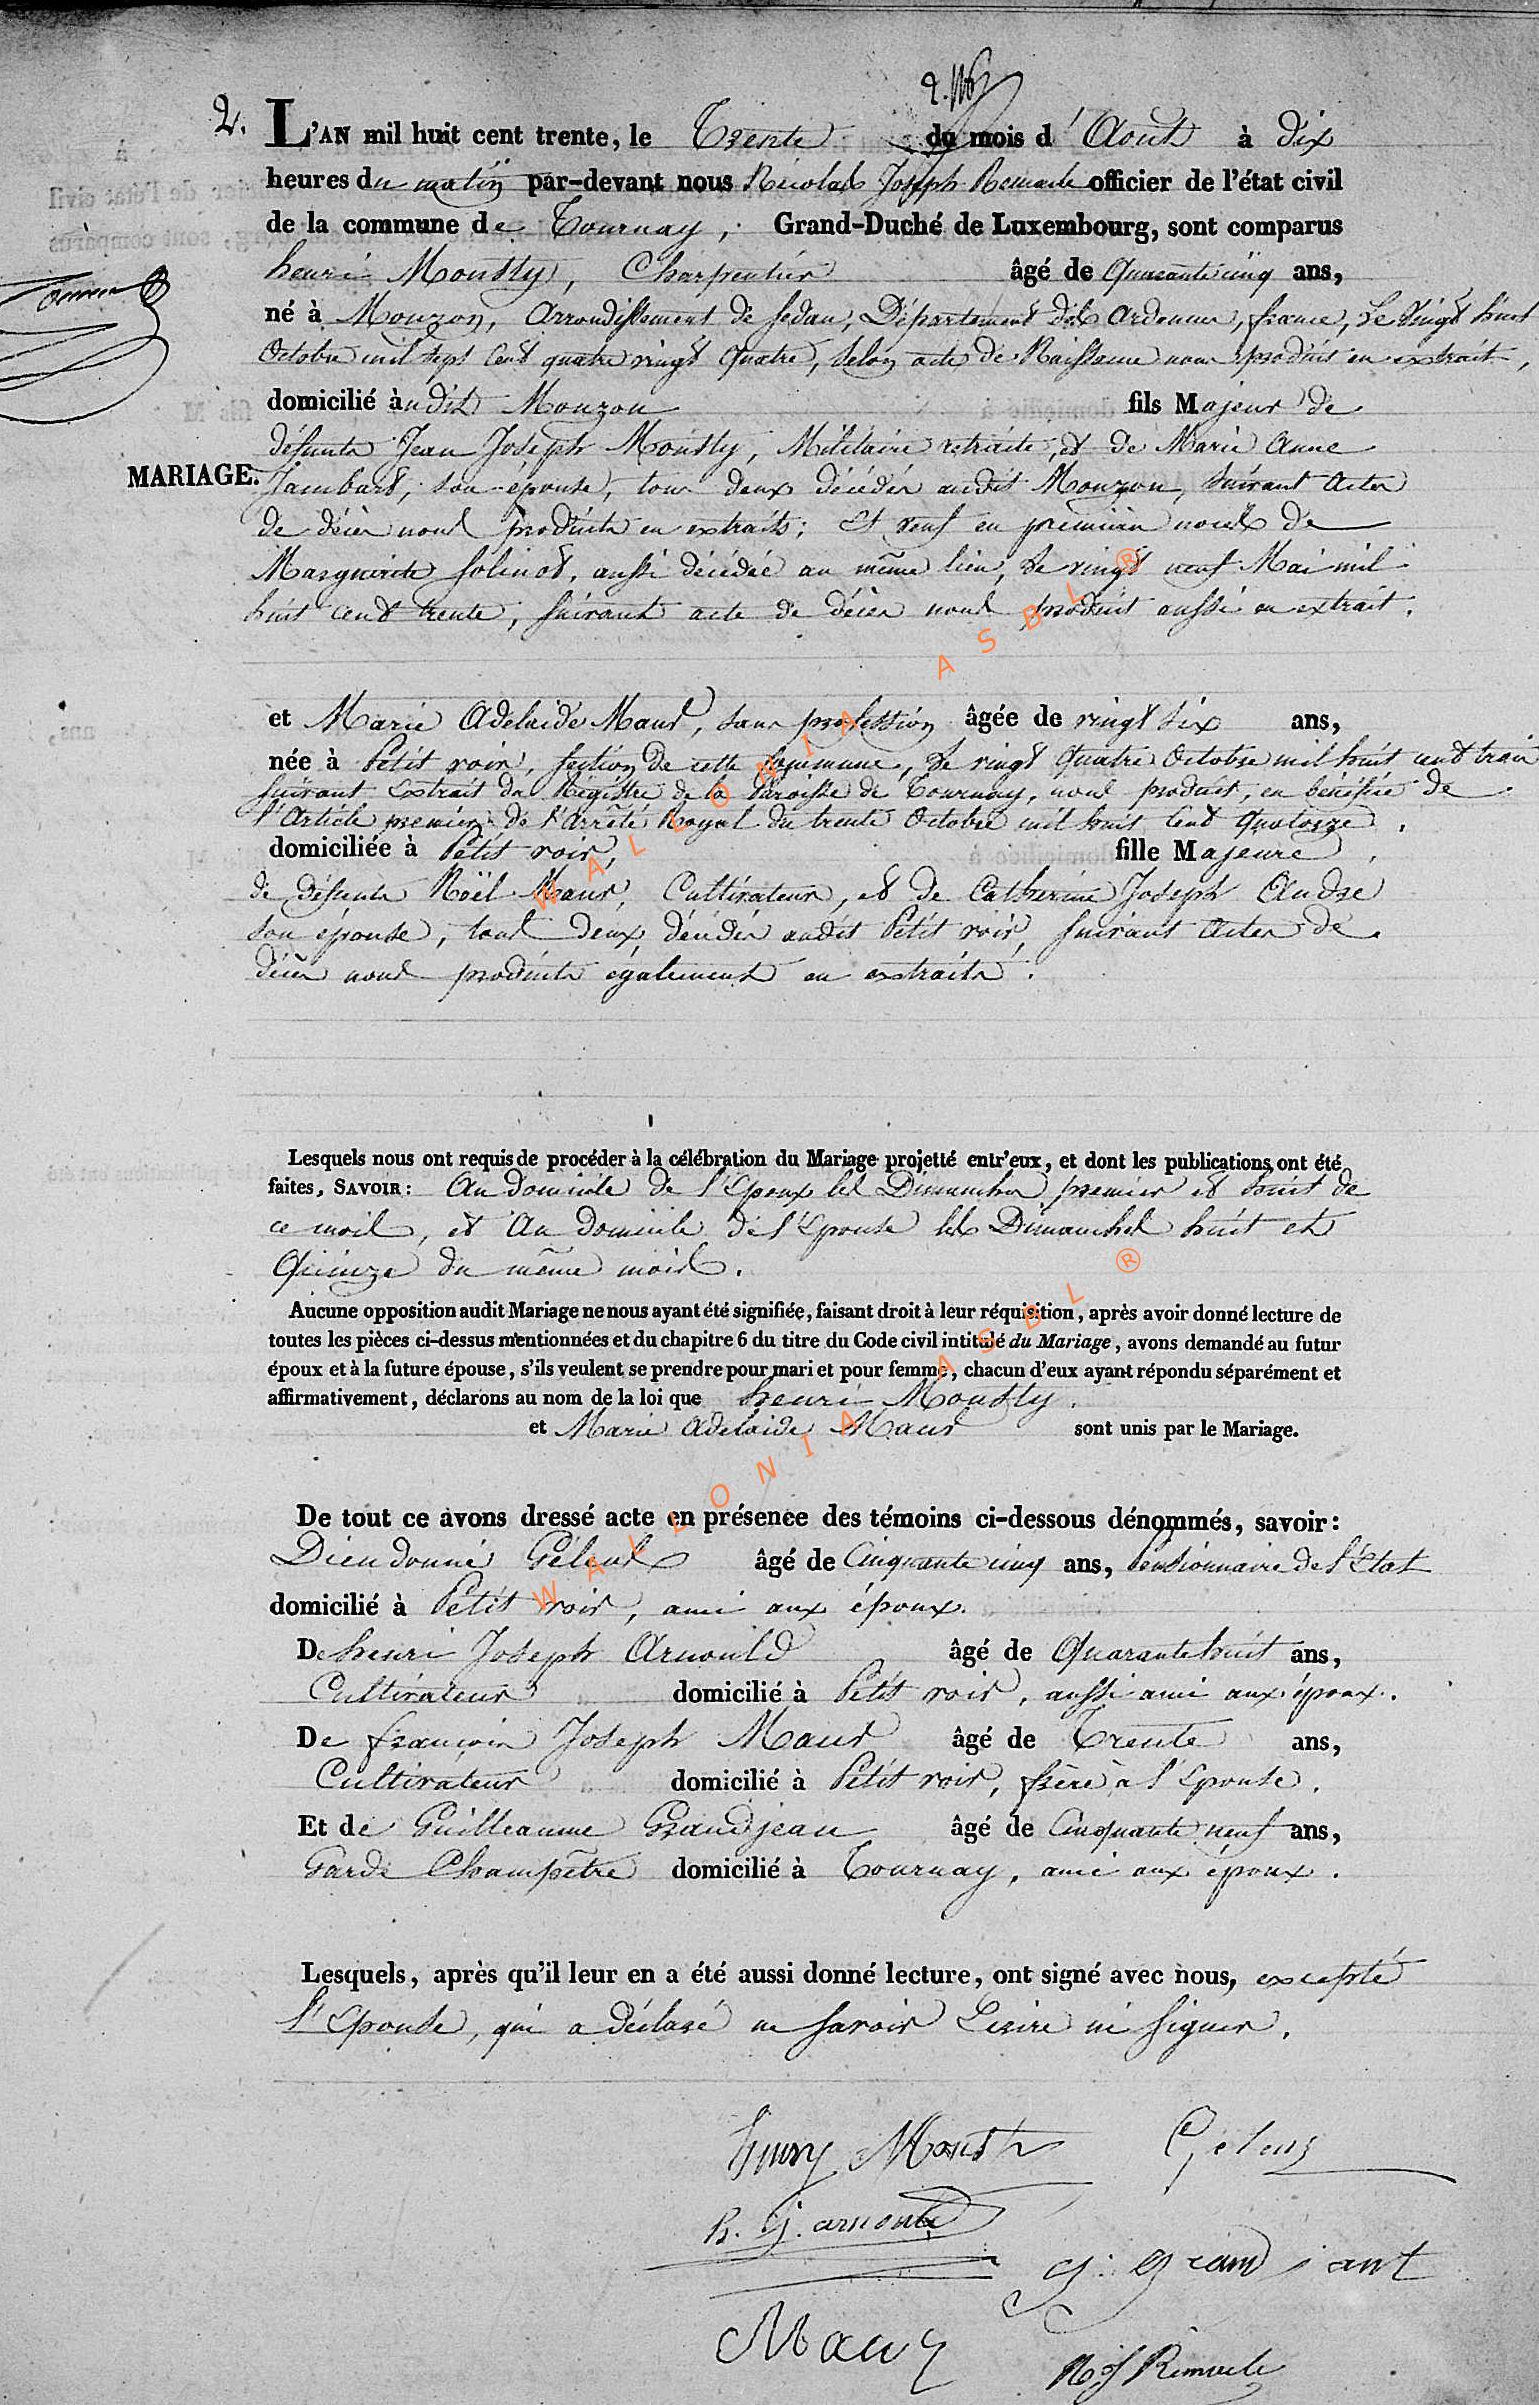 2.
L'AN mil huit cent trente, le Trente du mois d'Aout à dix
heures du matin par-devant nous Nicolas Joseph Remacle officier de l'état civil
de la commune de Tournay, Grand-Duché de Luxembourg, sont comparus
henri Mousty, Charpentier âgé de Quarante cinq ans,
né à Mouzon, Arrondissement de Sedan, Département des Ardennes, france, Le Vingt huit
Octobre mil sept Cent quatre vingt Quatre, selon acte de Naissance nous produit en extrait,
domicilié àudit Mouzon fils Majeur de
défunts Jean Joseph Mousty, Militaire retraité, et de Marie Anne
MARIAGE.
Jambart, son épouse, tous deux décédés audit Mouzon, suivant Actes
de décès nous produits en extraits; Et veuf en premières noces de
Marguerite Solinot, aussi décédée au même lieu, Le vingt neuf Mai mil
huit cent trente, suivant acte de décès nous produit aussi en extrait.
et Marie Adelaïde Maus, sans profession âgée de vingt six ans,
née à Petit voir, section de cette Commune, Le vingt Quatre Octobre mil huit cent trois
suivant Extrait du Régistre de la Paroisse de Tournay, nous produit, en bénéfice de
l'Article premier de l'Arrêté Royal du trente Octobre mil huit Cent Quatorze,
domiciliée à Petit voir, fille Majeure
de défunts Noël Maus, Cultivateur, et de Catherine Joseph Andre
son épouse, tous deux décédés audit Petit voir, suivant Actes de
décès nous produits également en extraits.
Lesquels nous ont requis de procéder à la célébration du Mariage projetté entr'eux, et dont les publications ont été
faites, SAVOIR: Au domicile de l'Epoux les Dimanches premier et huit de
ce mois, et Au domicile de l'Epouse les Dimanches huit et
Quinze du même mois.
Aucune opposition audit Mariage ne nous ayant été signifiée, faisant droit à leur réquisition, après avoir donné lecture de
toutes les pièces ci-dessus mentionnées et du chapitre 6 du titre du Code civil intitulé du Mariage, avons demandé au futur
époux et à la future épouse, s'ils veulent se prendre pour mari et pour femme, chacun d'eux ayant répondu séparément et
affirmativement, déclarons au nom de la loi que henri Mousty.
et Marie Adelaïde Maus sont unis par le Mariage.
De tout ce avons dressé acte en présence des témoins ci-dessous dénommés, savoir:
Dieudonné Gélens âgé de Cinquante cinq ans, Pensionnaire de l'Etat
domicilié à Petit voir, ami aux époux.
De henri Joseph Arnould âgé de Quarante huit ans,
Cultivateur domicilié à Petit voir, aussi ami aux époux.
De françois Joseph Maus âgé de Trente ans,
Cultivateur domicilié à Petit voir, frère à l'Epouse.
Et de Guilleaume Grandjean âgé de Cinquante neuf ans,
Garde Champêtre domicilié à Tournay, ami aux époux.
Lesquels, après qu'il leur en a été aussi donné lecture, ont signé avec nous, excepté
l'Epouse, qui a déclaré ne savoir Ecrire ni signer.
henry Mousty Gélens
h. j. arnould
g. grandjant
Maus
N. J Remacle
WALLONIA ASBL ®
WALLONIA ASBL ®